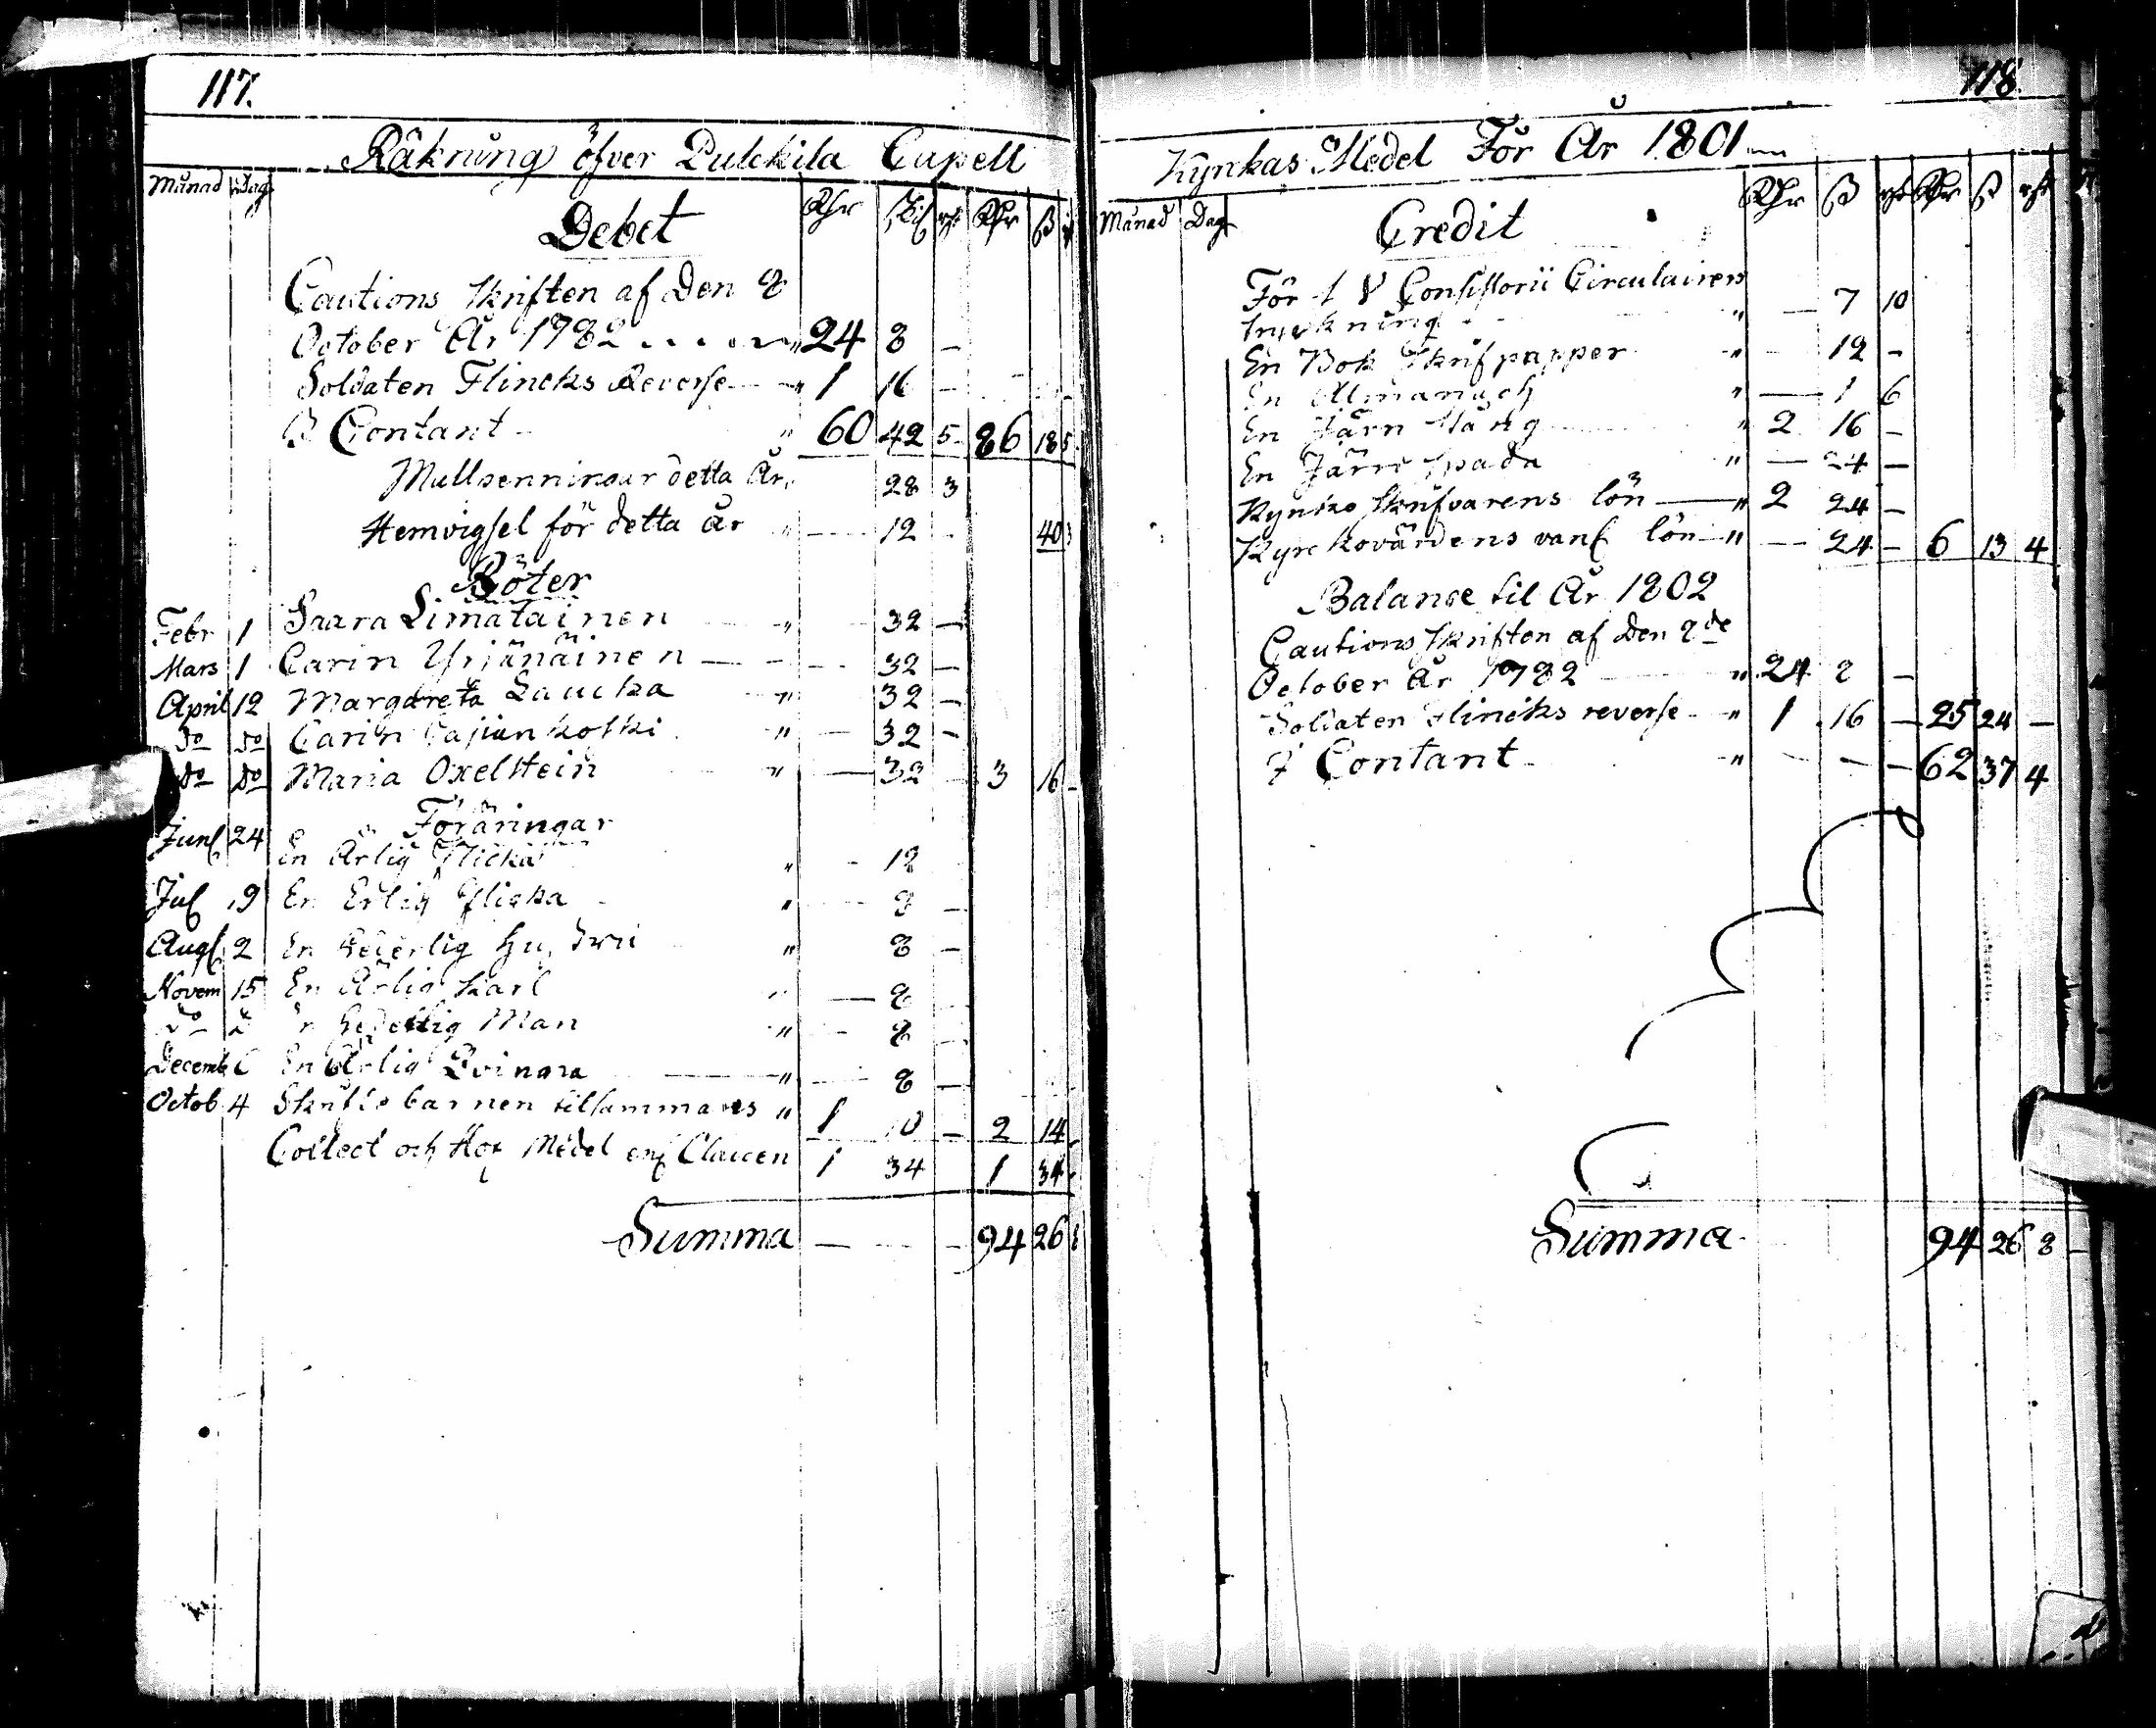 117.
Räkning öfver Pulckila Capell
Månad Dag Debet Rdr Skil rst Rdr ß
Cautions skriften af den 8
October År 1782 . . . . " 24 8 —
Soldaten Flincks Reverse — " 1 16 —
Contant " 60 42 5 86 18 5
Mullpenningar detta År 28 3
Hemvigsel för detta år " — 12 40 3
Böter
Febr 1 Saara Limatainen — " 32 —
Mars 1 Carin Yrjänäinen — 32 —
April 12 Margareta Laucka " 32 —
do do Carin Cajankoski " — 32 —
do do Maria Oxelstein " — 32 3 16 —
Föräringar
Junʃ 24 En Ärlig Flicka " — 12
Julʃ 19 En Erlig flicka " 8 —
Augʃ 2 En hederlig Hustru " 8 —
Novem 15 En Ärlig karl " — 8
do d En hederlig Man " — 8
Decemb 6 En Ärlig Qvinna — " 8 —
Octob 4 Skriftebarnen tilsammans " 1 10 — 2 14
Collect och Hof Medel enʃ Claven 1 34 1 34
Summa — — — 94 26 8
118.
Kyrkas Medel För År 1801
Månad Dag Credit Rdr ß rst Rdr ß rst
För Consistorii Circulairers
tryckning " — 7 10
En Bok Skrifpapper " — 12 —
En Allmanach " — 1 6
En Järn stång " 2 16 —
En Järn spada " — 24 —
Kyrko skrifvarens lön — " 2 24 —
Kyrckovärdens vanʃ lön — " — 24 — 6 13 4
Balance til År 1802
Cautions skriften af den 8de
October År 1782 — " 24 8 —
Soldaten Flincks reverse — " 1 16 — 25 24 —
Contant " — — — 62 37 4
Summa 94 26 8